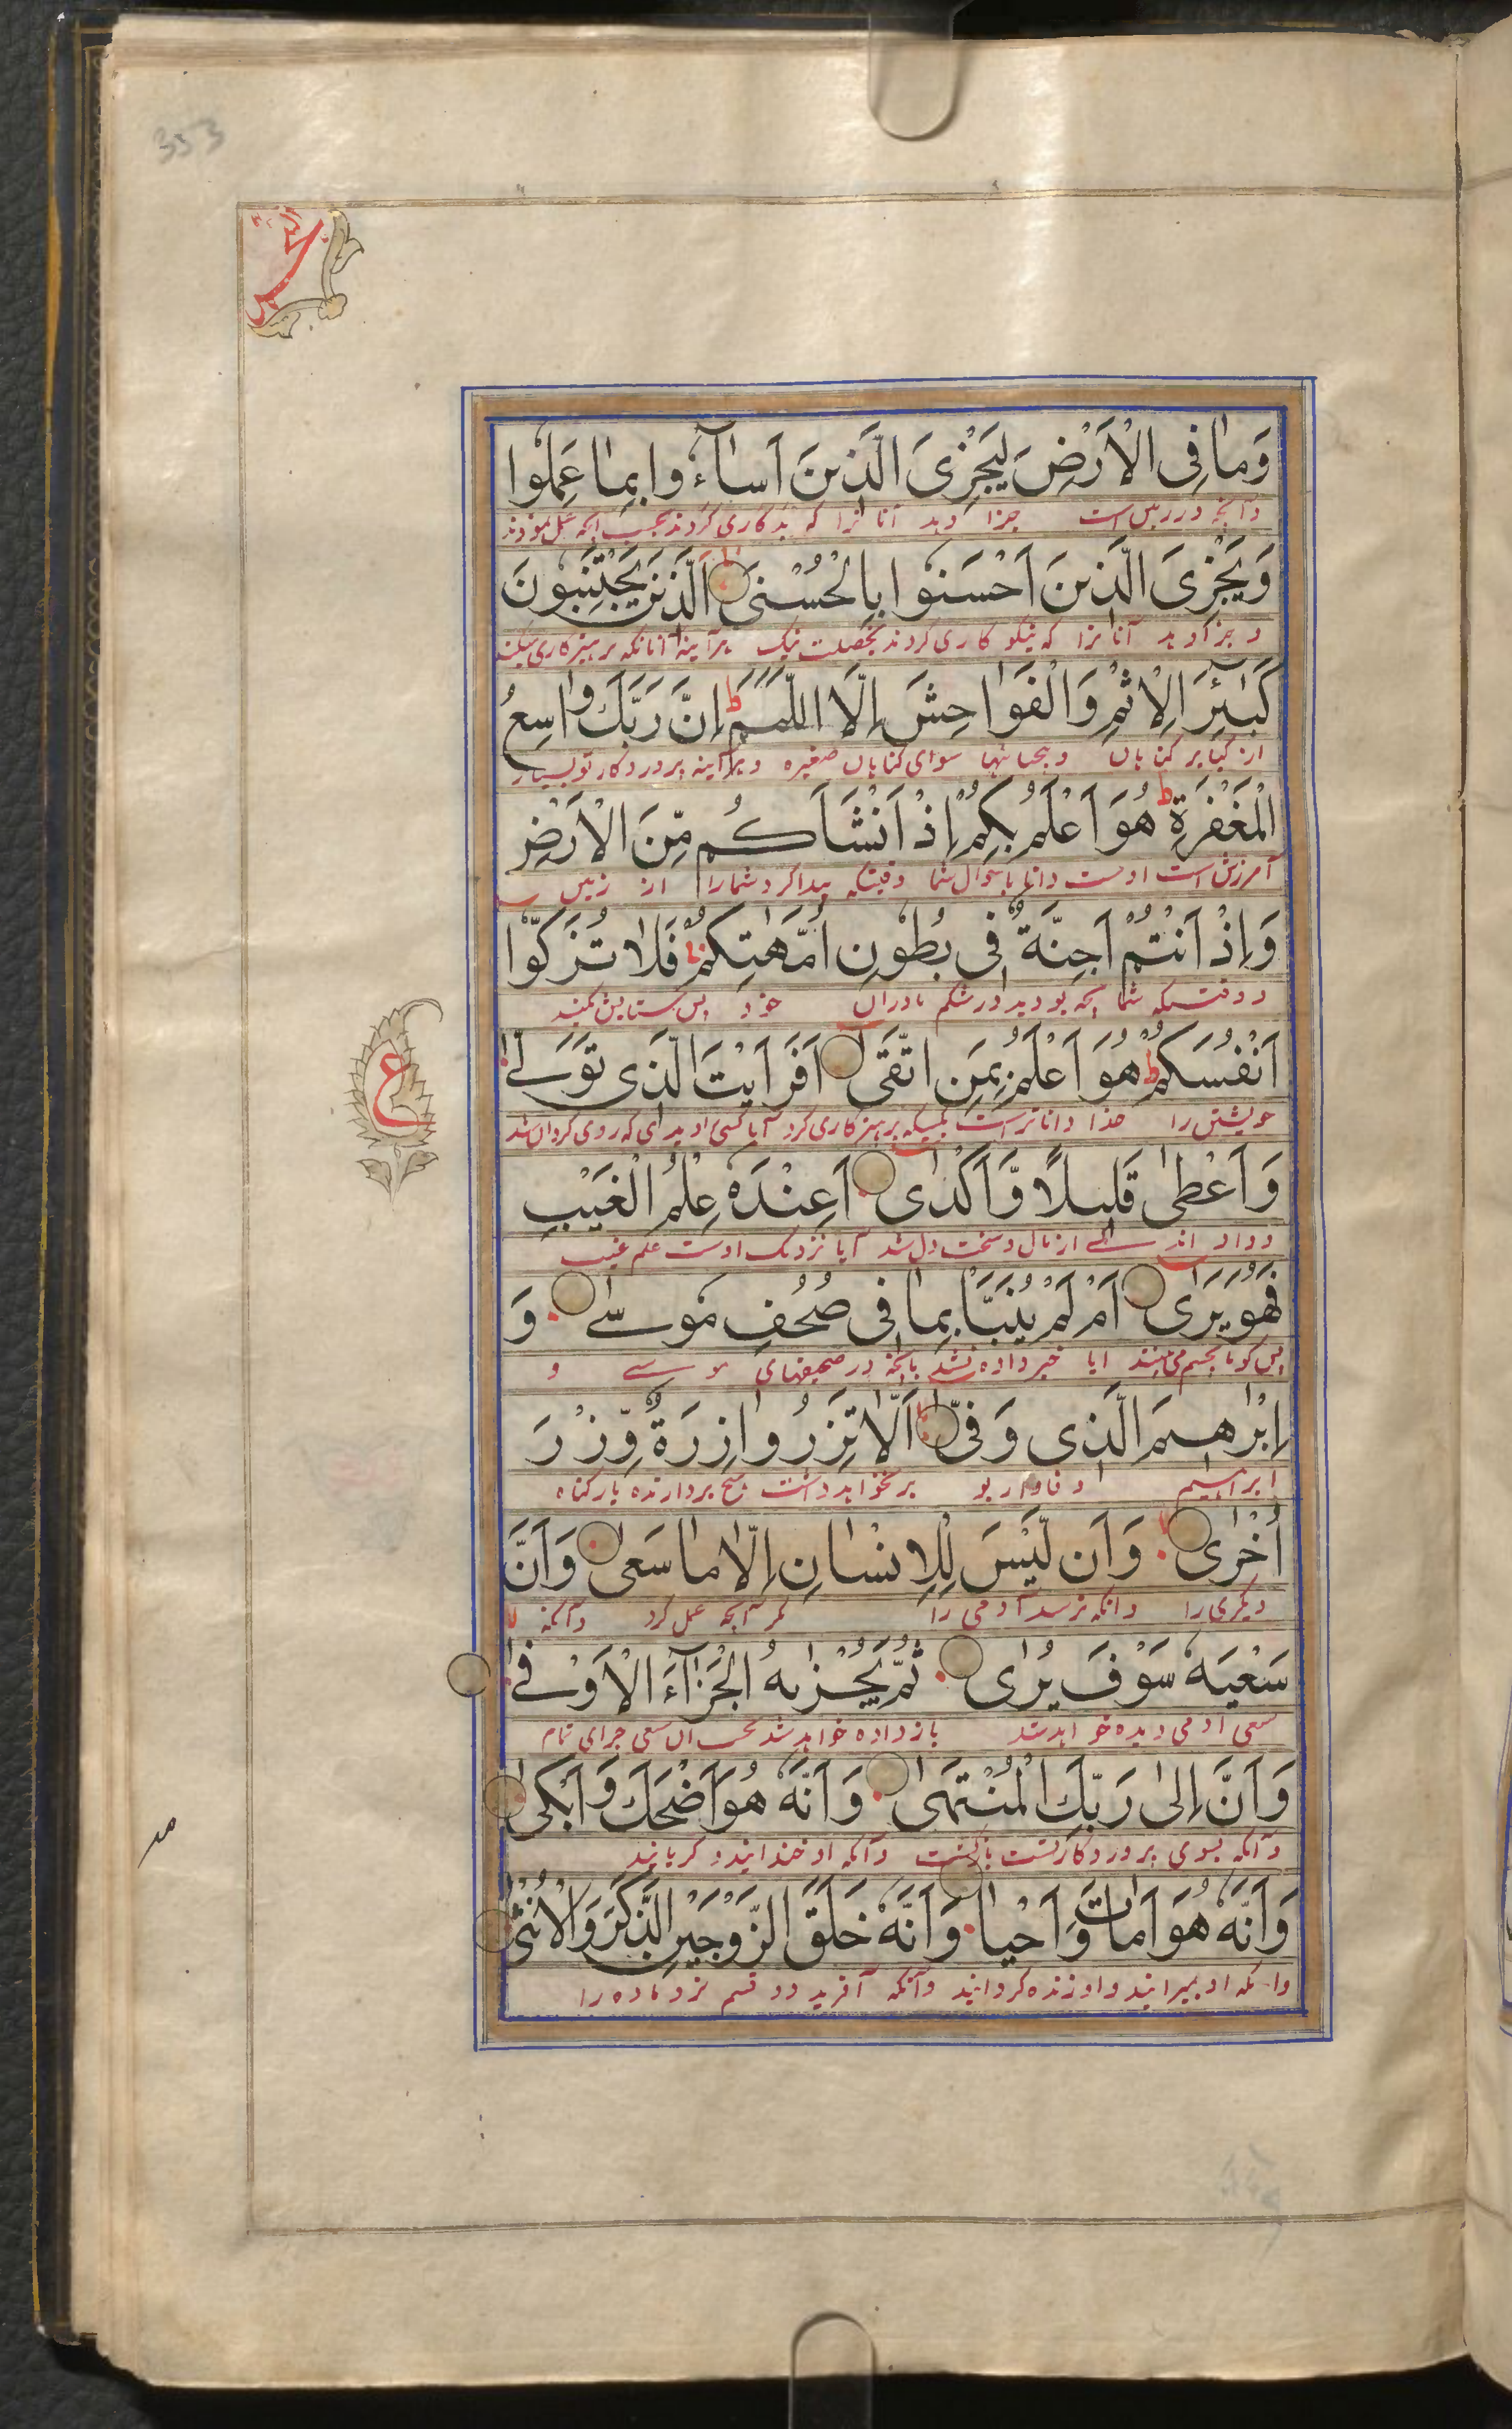 353
وَمَا فِى الْاَرْضِ لِيَجْزِىَ الَّذِينَ اَسَآءُ وا بِمَا عَمِلُوا
وآنچه در زمین است جزا دهد آنانرا که بدکاری کردند بحسب آنچه عمل نمودند
وَيَجْزِىَ الَّذِينَ اَحْسَنُوا بِالْحُسْنَى اَلَّذِينَ يَجْتَنِبُونَ
و جزا دهد آنانرا که نیکو کاری کردند بخصلت نیک هرآینه آنانکه پرهیزکاری میکنند
كَبٰٓئِرَ الْاِثْمِ وَالْفَوَاحِشَ اِلَّا اللَّمَمَ ط اِنَّ رَبَّكَ وَاسِعُ
از کبایر گناهان و بیحیائیها سوای گناهان صغیره و هرآینه پروردگار تو بسیار
الْمَغْفِرَةِ ط هُوَ اَعْلَمُ بِكُمْ اِذْ اَنْشَاَكُمْ مِّنَ الْاَرْضِ
آمرزش است اوست دانا باحوال شما وقتیکه پیدا کرد شمارا از زمین
وَاِذْ اَنْتُمْ اَجِنَّةٌ فِى بُطُونِ اُمَّهٰتِكُمْ فَلَا تُزَكُّوا
و وقتیکه شما بچه بودید در شکم مادران خود پس ستایش مکنید
اَنْفُسَكُمْ ط هُوَ اَعْلَمُ بِمَنِ اتَّقَى اَفَرَاَيْتَ الَّذِى تَوَلّٰى
خویشتن را خدا داناتر است بکسیکه پرهیزکاری کرد آیا کسی را دیدی که روی گردان شد
ع
وَاَعْطٰى قَلِيلًا وَّاَكْدٰى اَعِنْدَهٗ عِلْمُ الْغَيْبِ
و داد اندکے از مال و سخت دل شد آیا نزدیک اوست علم غیب
فَهُوَ يَرٰى اَمْ لَمْ يُنَبَّاْ بِمَا فِى صُحُفِ مُوسٰى وَ
پس گویا بچشم می بیند آیا خبر داده نشد بآنچه در صحیفهای موسے و
اِبْرٰهِيمَ الَّذِى وَفّٰى اَلَّا تَزِرُ وَازِرَةٌ وِّزْرَ
ابراهیم وفادار بود بر نخواهد داشت هیچ بردارنده بار گناه
اُخْرٰى وَاَن لَّيْسَ لِلْاِنْسَانِ اِلَّا مَا سَعٰى وَاَنَّ
دیگری را وآنکه نرسد آدمی را مگر آنچه عمل کرد وآنکه
سَعْيَهٗ سَوْفَ يُرٰى ثُمَّ يُجْزٰىهُ الْجَزَآءَ الْاَوْفٰى
سعی آدمی دیده خواهد شد باز داده خواهد شد بحسب آن سعی جزای تمام
وَاَنَّ اِلٰى رَبِّكَ الْمُنْتَهٰى وَاَنَّهٗ هُوَ اَضْحَكَ وَاَبْكٰى
وآنکه بسوی پروردگار تست بازگشت وآنکه او خندانید و گریانید
وَاَنَّهٗ هُوَ اَمَاتَ وَاَحْيَا وَاَنَّهٗ خَلَقَ الزَّوْجَيْنِ الذَّكَرَ وَالْاُنْثٰى
وآنکه او بمیرانید و او زنده گردانید وآنکه آفرید دو قسم نر و ماده را